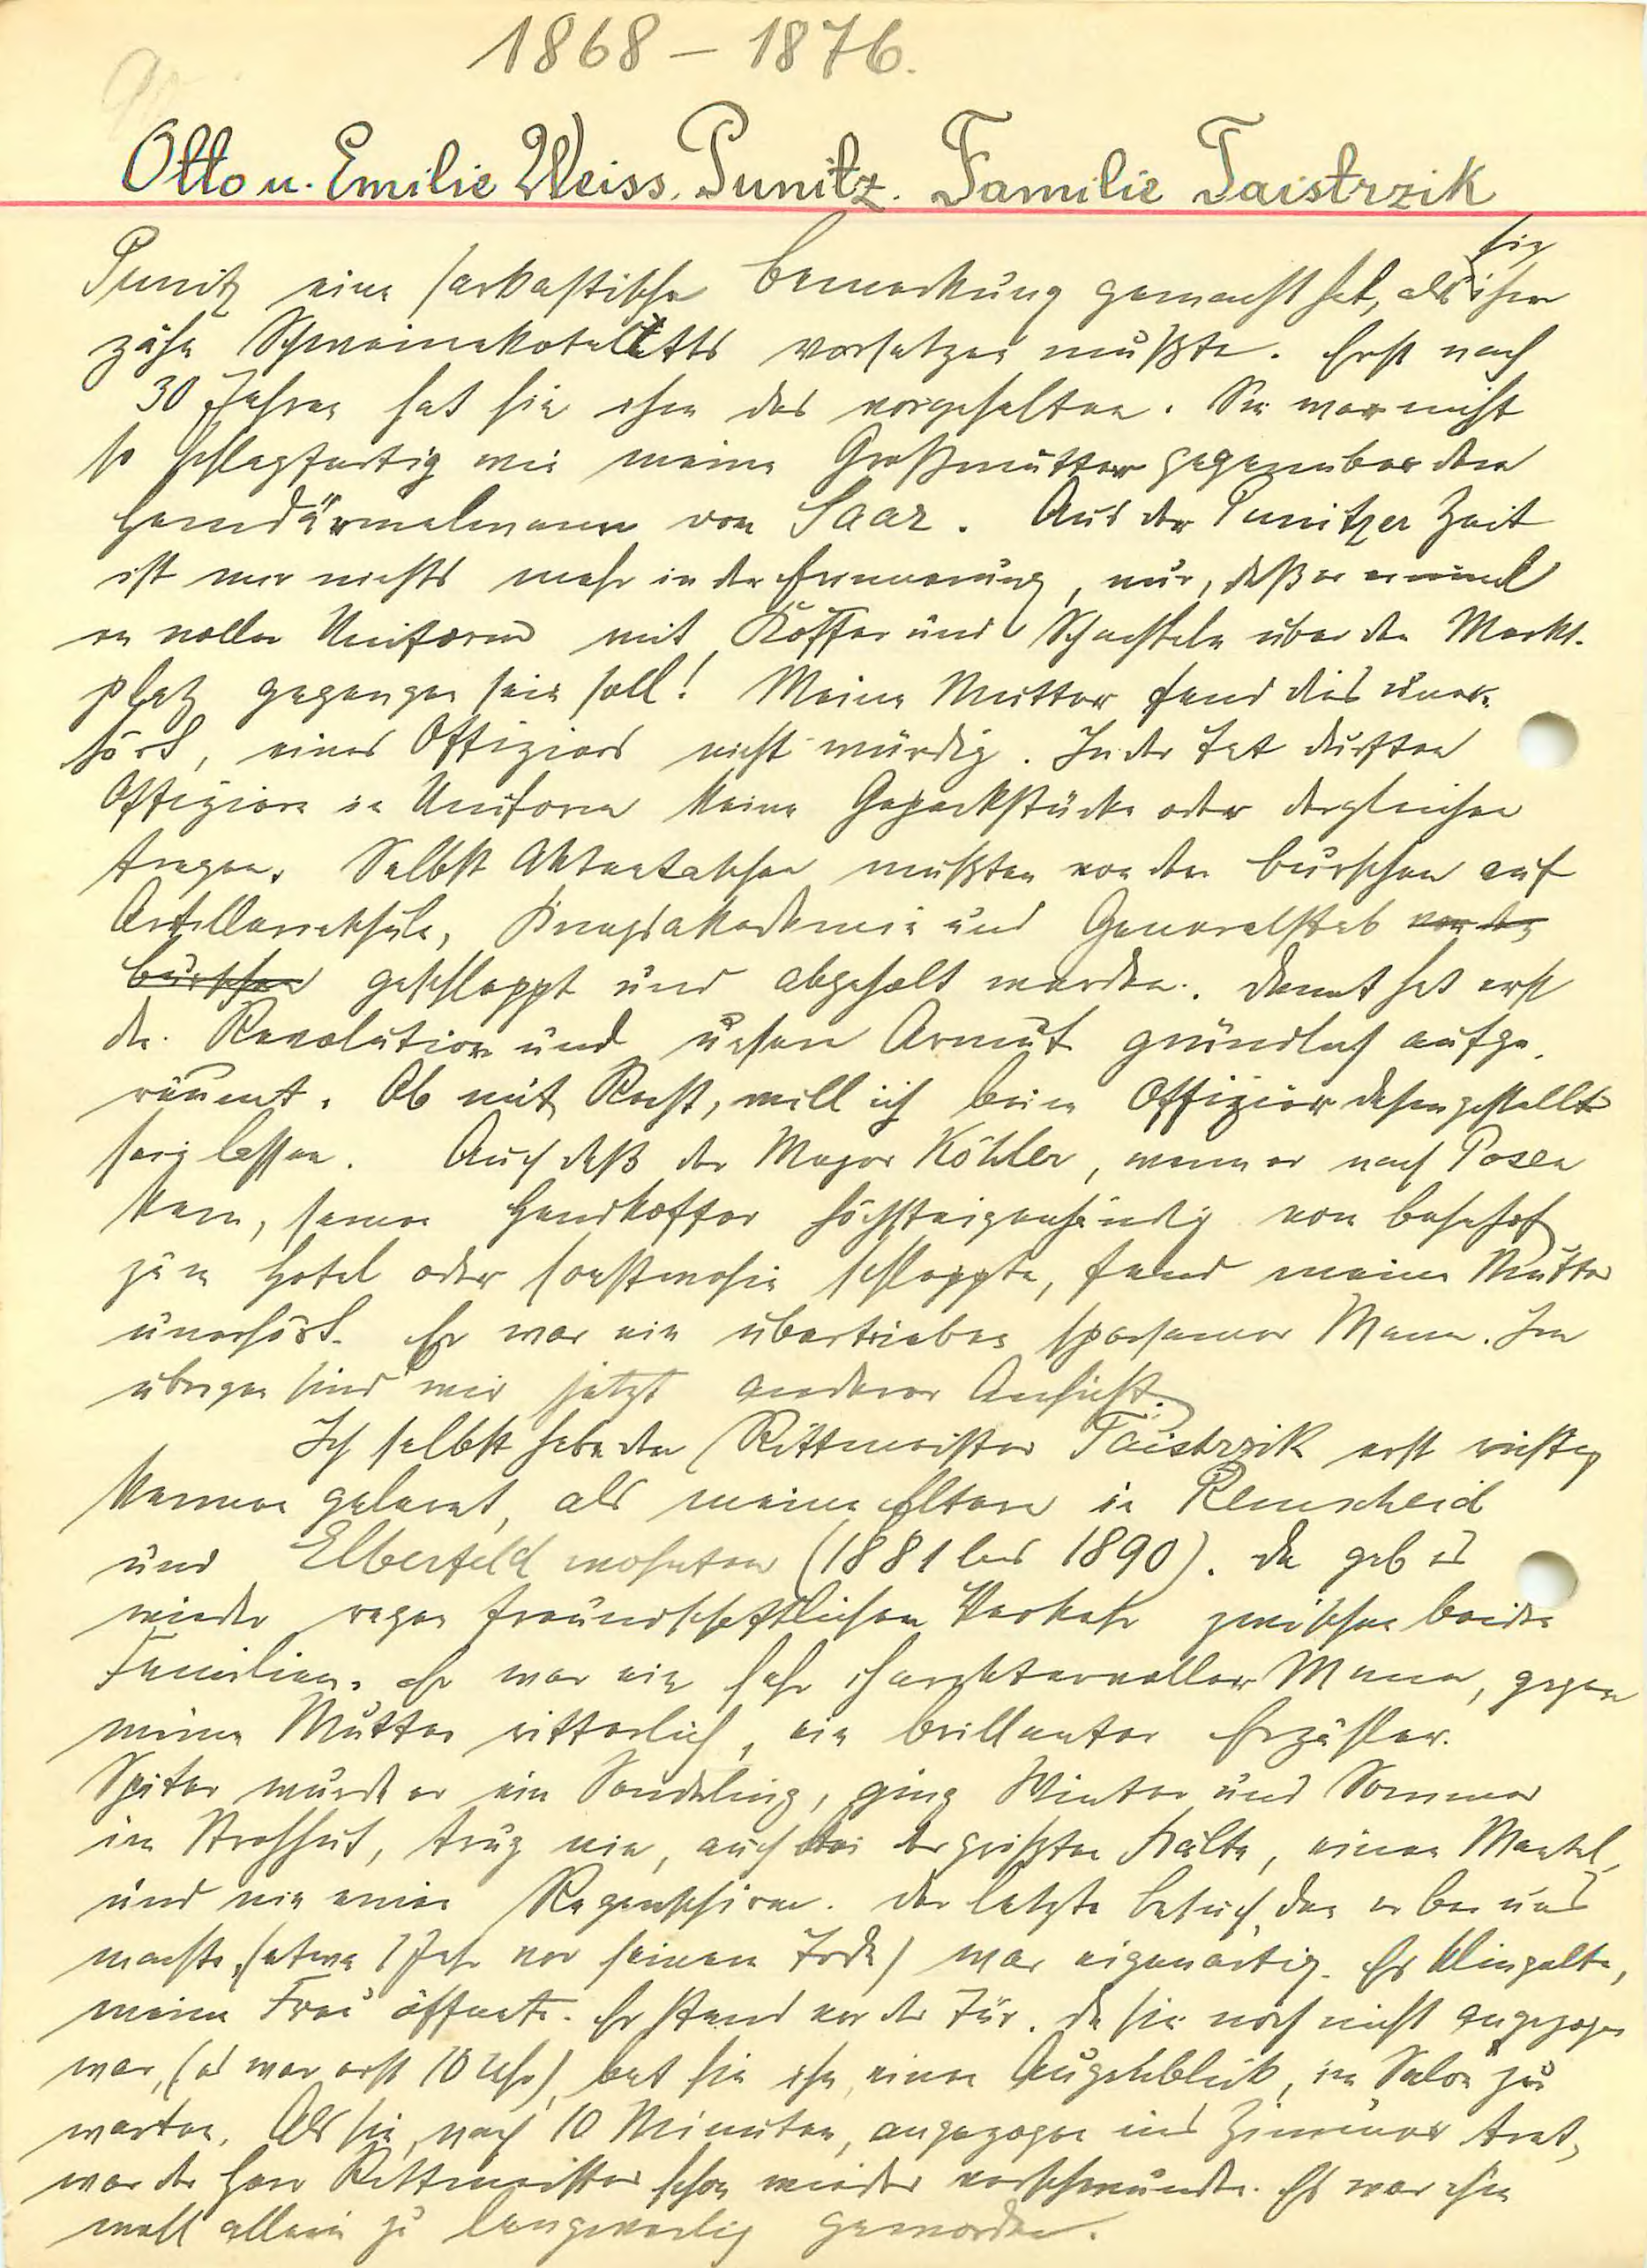 1868 – 1876.
Otto u. Emilie Weiss. Punitz. Familie Taistrzik
sie
Punitz eine sarkastische Bemerkung gemacht hat, als ihm
zähe Schweinekoteletts vorsetzen mußte. Erst nach
30 Jahren hat sie ihm das vorgehalten. Sie war nicht
so schlagfertig wie meine Großmutter gegenüber dem
Hemdärmelmann von Saar. Aus der Punitzer Zeit
ist mir nichts mehr in der Erinnerung, nur, daß er einmal
in voller Uniform mit Koffer und Schachteln über den Markt-
platz gegangen sein soll! Meine Mutter fand dies uner-
hört, eines Offiziers nicht würdig. In der Tat durften
Offiziere in Uniform keine Gepäckstücke oder dergleichen
tragen. Selbst Aktentaschen mußten von den Burschen auf
Artillerieschule, Kriegsakademie und Generalstab von den
Burschen geschleppt und abgeholt werden. Damit hat erst
die Revolution und unsere Armut gründlich aufge-
räumt. Ob mit Recht, will ich beim Offizier dahingestellt
sein lassen. Auch daß der Major Köhler, wenn er nach Posen
kam, seinen Handkoffer höchsteigenhändig vom Bahnhof
zum Hotel oder sonstwohin schleppte, fand meine Mutter
unerhört. Er war ein übertrieben sparsamer Mann. Im
übrigen sind wir jetzt anderer Ansicht.
Ich selbst habe den Rittmeister Taistrzik erst richtig
kennen gelernt, als meine Eltern in Remscheid
und Elberfeld wohnten (1881 bis 1890). Da gab es
wieder regen freundschaftlichen Verkehr zwischen beiden
Familien. Er war ein sehr charaktervoller Mann, gegen
meine Mutter ritterlich, ein brillanter Erzähler.
Später wurde er ein Sonderling, ging Winter und Sommer
im Strohhut, trug nie, auch bei der größten Kälte, einen Mantel,
und nie einen Regenschirm. Der letzte Besuch, den er bei uns
machte, (etwa 1 Jahr vor seinem Tode) war eigenartig. Es klingelte,
meine Frau öffnete. Er stand vor der Tür. Da sie noch nicht angezogen
war, (es war erst 10 Uhr), bat sie ihn, einen Augenblick, im Salon zu
warten. Als sie, nach 10 Minuten, angezogen ins Zimmer trat,
war der Herr Rittmeister schon wieder verschwunden. Es war ihm
wohl allein zu langweilig geworden.